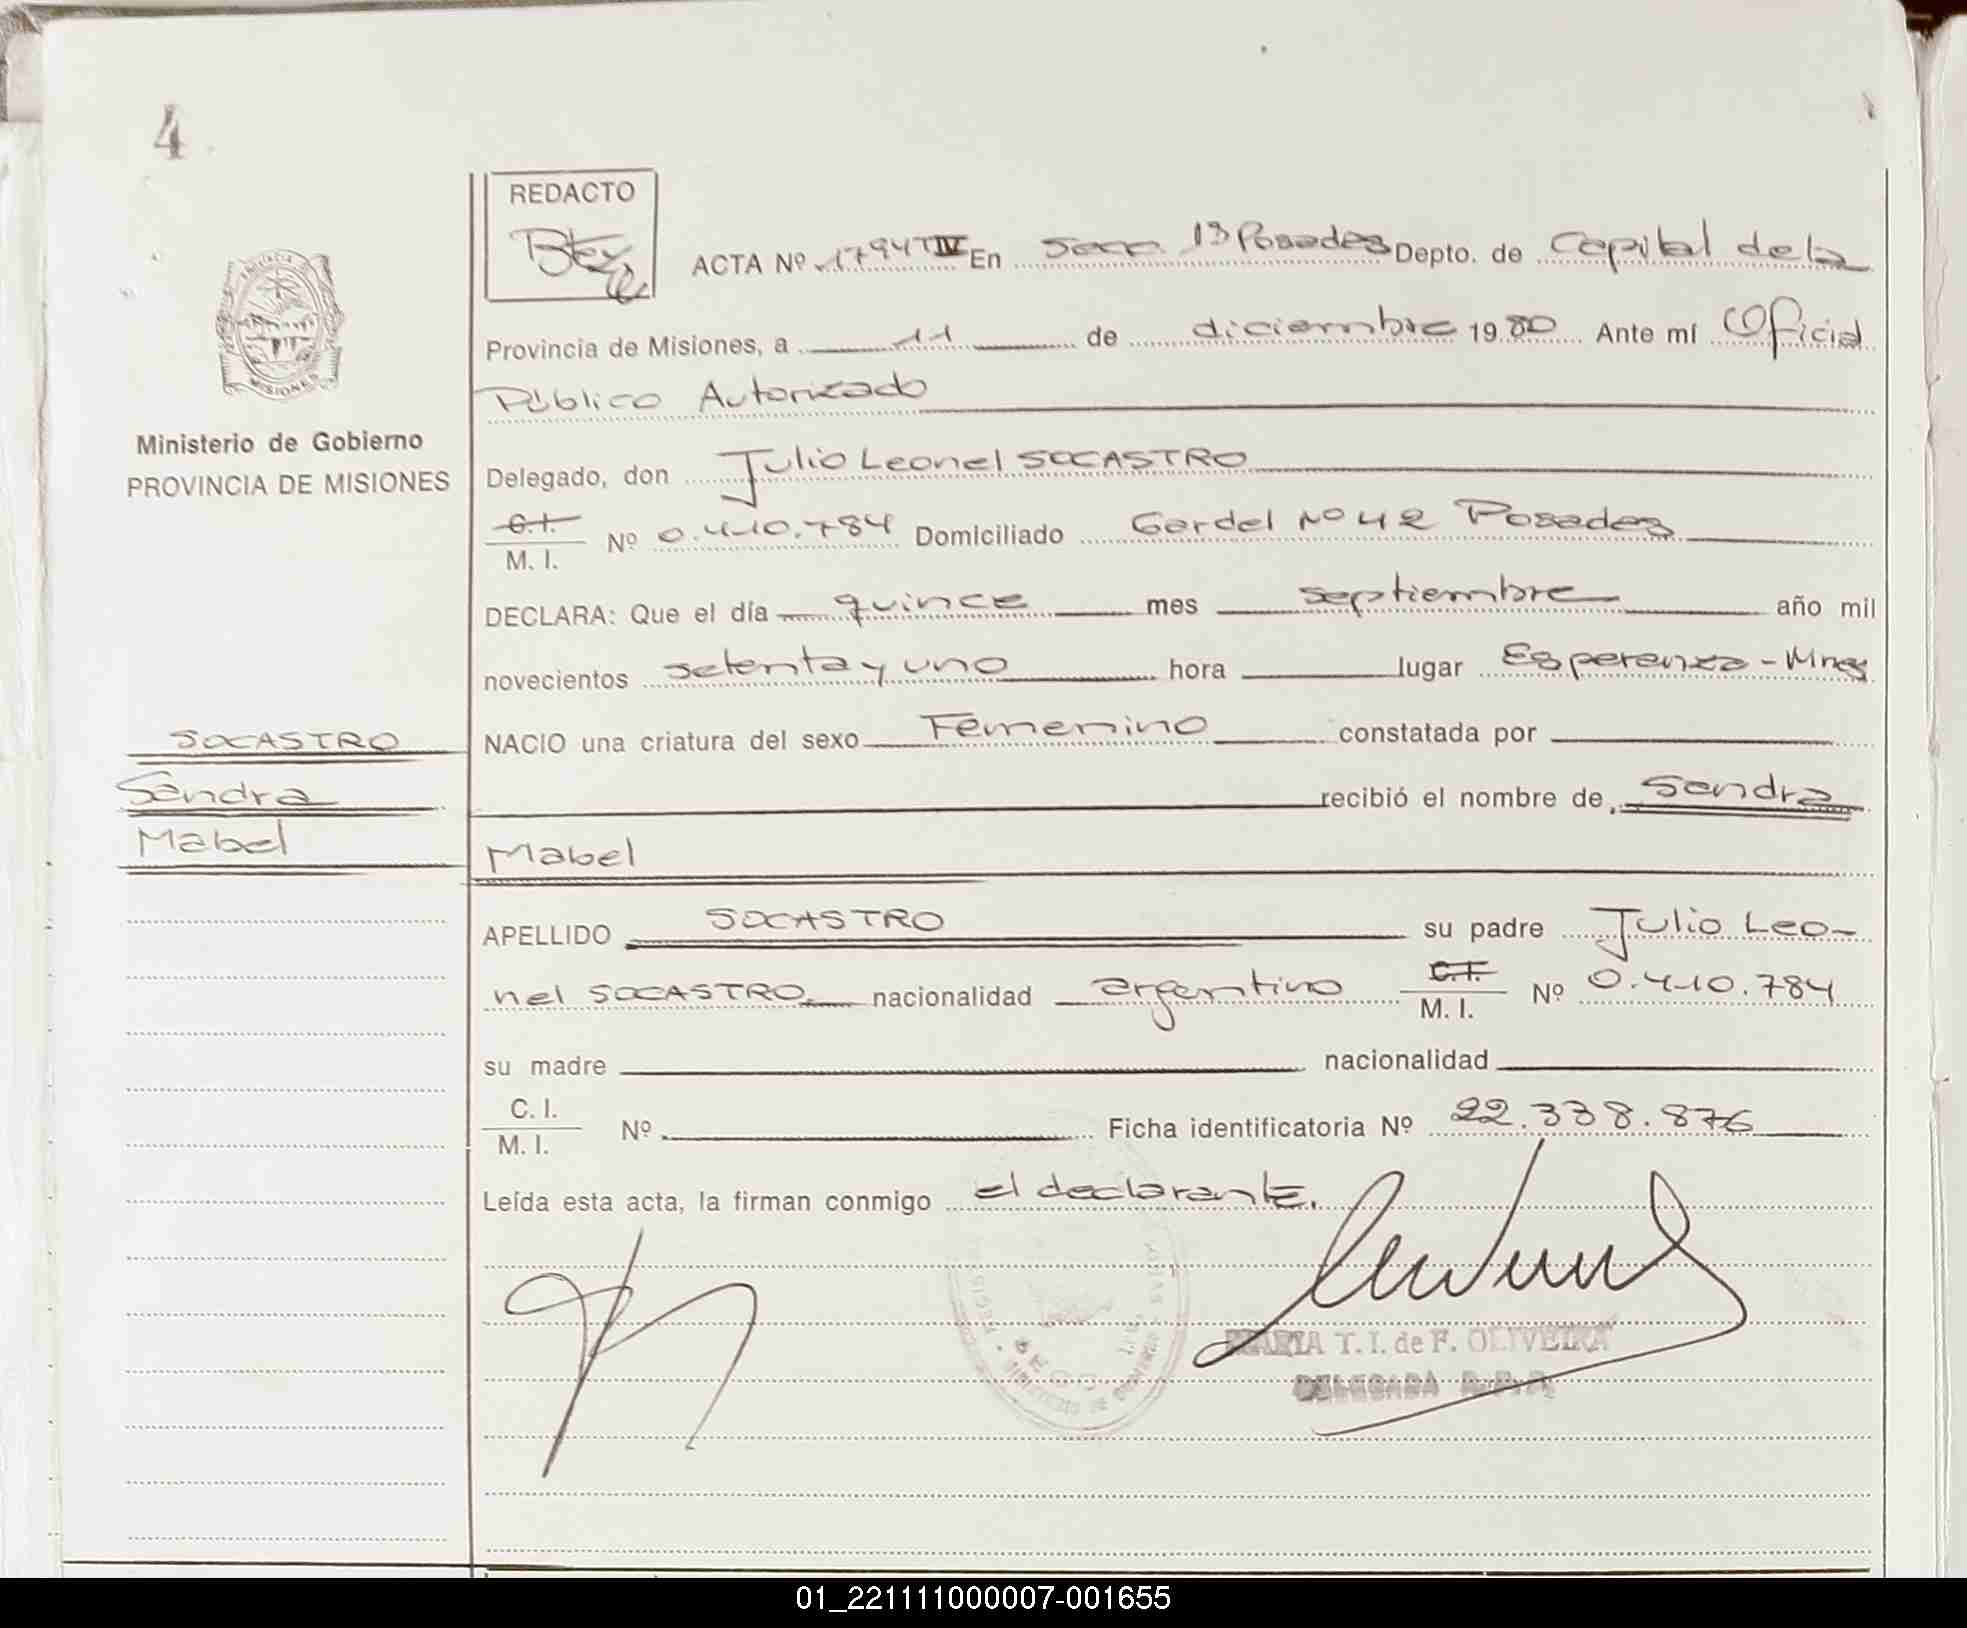 4
REDACTO
ACTA Nº 1794 TIV En Secc. 13 Posadas Depto. de Capital de la
Provincia de Misiones, a 11 de diciembre 1980 Ante mí Oficial
Público Autorizado
Ministerio de Gobierno
PROVINCIA DE MISIONES
MISIONES
Delegado, don Julio Leonel SOCASTRO
C.I.
M. I. Nº 0.410.784 Domiciliado Gardel Nº 42 Posadas
DECLARA: Que el día quince mes septiembre año mil
novecientos setenta y uno hora lugar Esperanza - Mnes
SOCASTRO
Sandra
Mabel
NACIO una criatura del sexo Femenino constatada por
recibió el nombre de, Sandra
Mabel
APELLIDO SOCASTRO su padre Julio Leo-
nel SOCASTRO nacionalidad argentino C.I. M. I. Nº 0.410.784
su madre nacionalidad
C. I.
M. I. Nº Ficha identificatoria Nº 22.338.876
Leída esta acta, la firman conmigo el declarante.
MARIA T. I. de F. OLIVEIRA
DELEGADA R.P.P.
01_221111000007-001655